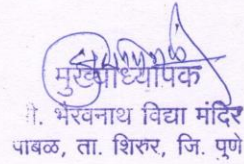 मुख्याध्यापक
भैरवनाथ विद्या मंदिर
पाबळ, ता. शिरुर, जि. पुणे